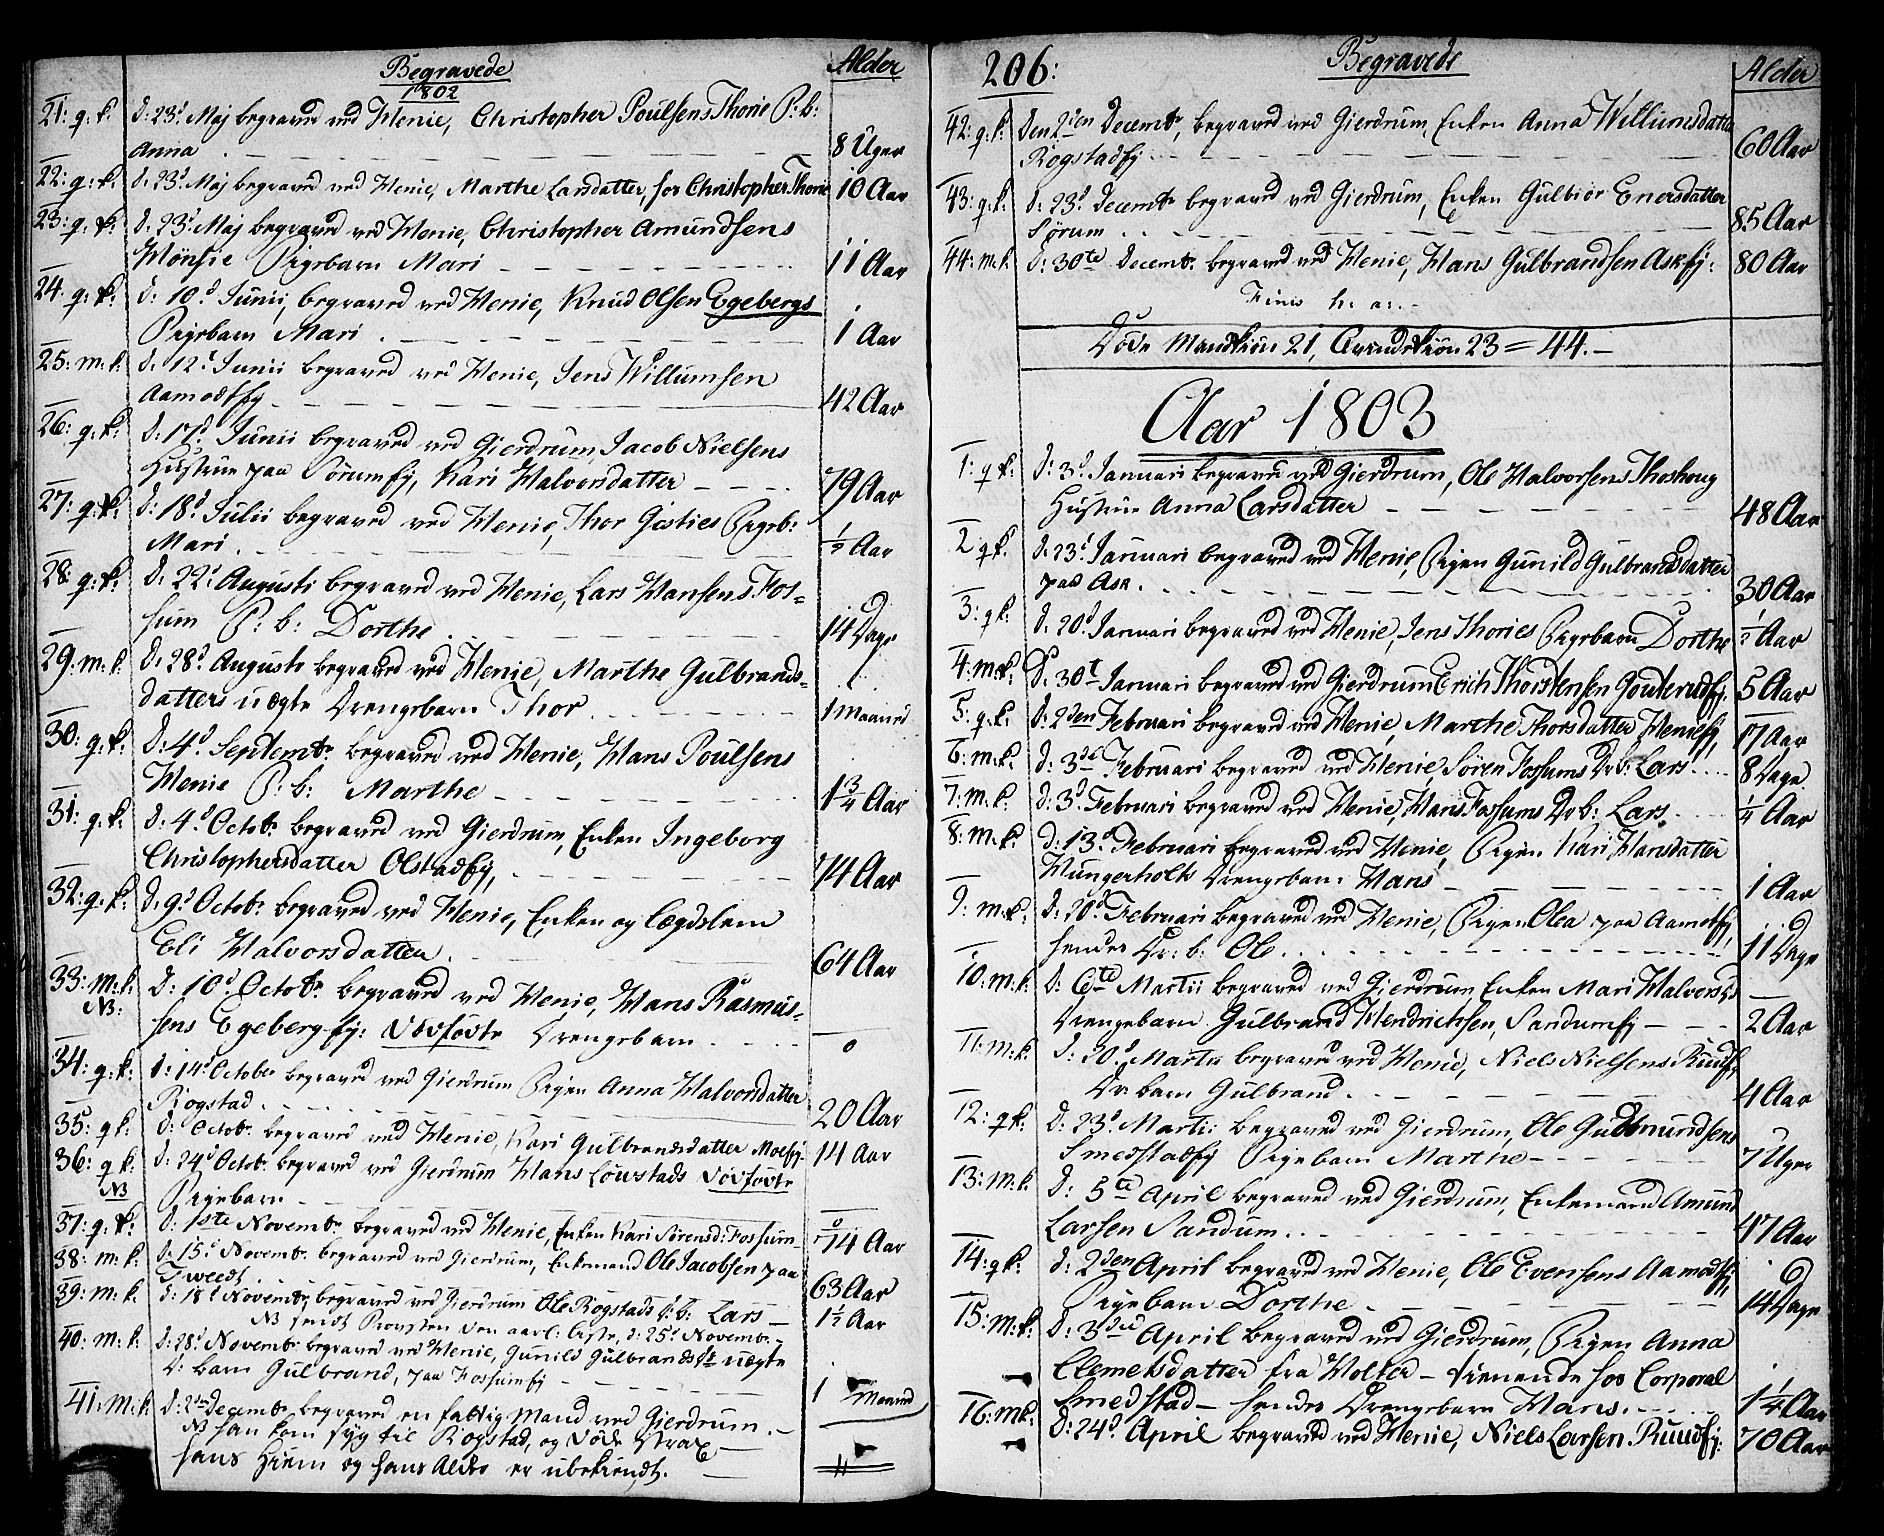 Begravede
1802
Alder
21: q: k: d: 23d Maj begraved ved Henie, Christopher Poulsens Thorie P: b:
Anna 8 Uger
22: q: k: d: 23d Maj begraved ved Henie, Marthe Larsdatter, hos Christopher Thorie 10 Aar
23: q: k: d: 23d Maj begraved ved Henie, Christopher Amundsens
Mønsie Pigebarn Mari 11 Aar
24: q: k: d: 10d Junii, begraved ved Henie, Knud Olsen Egebergs
Pigebarn Mari 1 Aar
25: m: k: d: 12t Junii begraved ved Henie, Jens Willumsen
Aamodtfj 42 Aar
26: q: k: d: 17d Junii begraved ved Gierdrum, Jacob Nielsens
Hustrue paa Sørumfj, Kari Halvorsdatter 79 Aar
27: q: k: d: 18d Julii begraved ved Henie, Thor Gisties Pigeb:
Mari 1/2 Aar
28: q: k: d: 22d Augusti begraved ved Henie, Lars Hansens Fos=
sum P: b: Dorthe 14 Dage
29: m: k: d: 28d Augusti begraved ved Henie, Marthe Gulbrands=
datters uægte Drengebarn Thor 1 Maaned
30: q: k: d: 4d Septembr begraved ved Henie, Hans Poulsens
Henie P: b: Marthe 1 3/4 Aar
31: q: k: d: 4d Octobr begraved ved Gierdrum, Enken Ingeborg
Christophersdatter Olstadfj, 74 Aar
32: q: k: d. 9d Octobr begraved ved Henie, Enken og Lægdslem
Eli Halvorsdatter 64 Aar
33: m: k: d: 10d Octobr begraved ved Henie, Hans Rasmus=
NB: sens Egeberg fj: Dødfødte Drengebarn 0
34: q: k: d: 14d Octobr begraved ved Gierdrum Pigen Anna Halvorsdatter
Rogstad 20 Aar
35: q k: d: Octobr begraved ved Henie, Kari Gulbrandsdatter Moefj 14 Aar
36: q k: d: 24d Octobr begraved ved Gierdrum Hans Löwstads Dødfødte
NB Pigebarn
37: q: k: d: 1ste Novembr begraved ved Henie, Enken Kari Sörensd: Fossum 74 Aar
38: m: k: d: 15d Novembr begraved ved Gierdrum, Enkemand Ole Jacobsen paa
Tweedt 63 Aar
39: m: k: d: 18d Novembr begraved ved Gierdrum Ole Rogstads b: Lars 1 1/2 Aar
NB sendt Provsten den aarl: liste, d: 25d Novembr
40: m: k: d: 28d Novembr begraved ved Henie, Gunild Gulbrandsdr uægte
D: barn Gulbrand, paa Fossumfj 1 Maaned
41: M: k: d: 2den Decembr begraved en fattig Mand ved Gierdrum.
NB han kom syg til Rogstad, og døde strax
hans Hiem og hans Alder er ubekiendt.
206:
Begravede
Alder
42: q: k: Den 2den Decembr, begraved ved Gierdrum, Enken Anna Willumsdatter
Rogstadfj 60 Aar
43: q: k: d: 23d Decembr begraved ved Gierdrum, Enken Gulbiør Enersdatter
Sørum 85 Aar
44: m: k. d: 30te Decembr begraved ved Henie, Hans Gulbrandsen Askfj: 80 Aar
Finis h: a:
Døde Mandkiøn 21, Qvindekiøn 23 = 44.
Aar 1803
1: q k: d: 3d Januari begraved ved Gierdrum, Ole Halvorsens Thoshoug
Hustrue Anna Larsdatter 48 Aar
2 q k. d. 23d Januari begraved ved Henie, Pigen Gunild Gulbrandsdatter
paa Ask 30 Aar
3: q k: d: 20d Januari begraved ved Henie, Jens Thories Pigebarn Dorthe 1/2 Aar
4: m: k: d: 30t Januari begraved ved Gierdrum Erich Thorstensen Gouterudfj: 5 Aar
5: q: k: d: 2den Februari begraved ved Henie, Marthe Thorsdatter Heniefj, 17 Aar
6: m: k: d: 3de Februari begraved ved Henie, Sören Fossums Dr b: Lars 8 Dage
7: m: k: d: 3d Februari begraved ved Henie, Hans Fossums Dr b: Lars 1/4 Aar
8: m: k: d: 13d Februari begraved ved Henie, Pigen Kari Hansdatter
Hungerholts Drengebarn Hans 1 Aar
9: m: k: d: 20d Februari begraved ved Henie, Pigen Olea paa Aamotfj,
hendes Dr: b: Ole 11 Dage
10: m: k: d: 6te Martii begraved ved Gierdrum Enken Mari Halvorsds
Drengebarn Gulbrand Hendrichsen, Sandumfj 2 Aar
11: m: k: d: 20d Martii begraved ved Henie, Niels Nielsens Ruudfj,
Dr barn Gulbrand 4 Aar
12: q k: d: 23d Martii begraved ved Gierdrum, Ole Gudmundsens
Smedstadfj Pigebarn Marthe 7 Uger
13: m: k. d: 5te April begraved ved Gierdrum, Enkemand Amund
Larsen Sandum 47 Aar
14: q k: d: 2den April begraved ved Henie, Ole Evensens Aamodtfj,
Pigebarn Dorthe 14 Dage
15: m: k: d: 3die April begraved ved Gierdrum, Pigen Anna
Clemetsdatter fra Holter - tienende hos Corporal
Smedstad - hendes Drengebarn Hans 1 1/4 Aar
16: mk: d: 24d April begraved ved Henie, Niels Larsen Ruudfj: 70 Aar